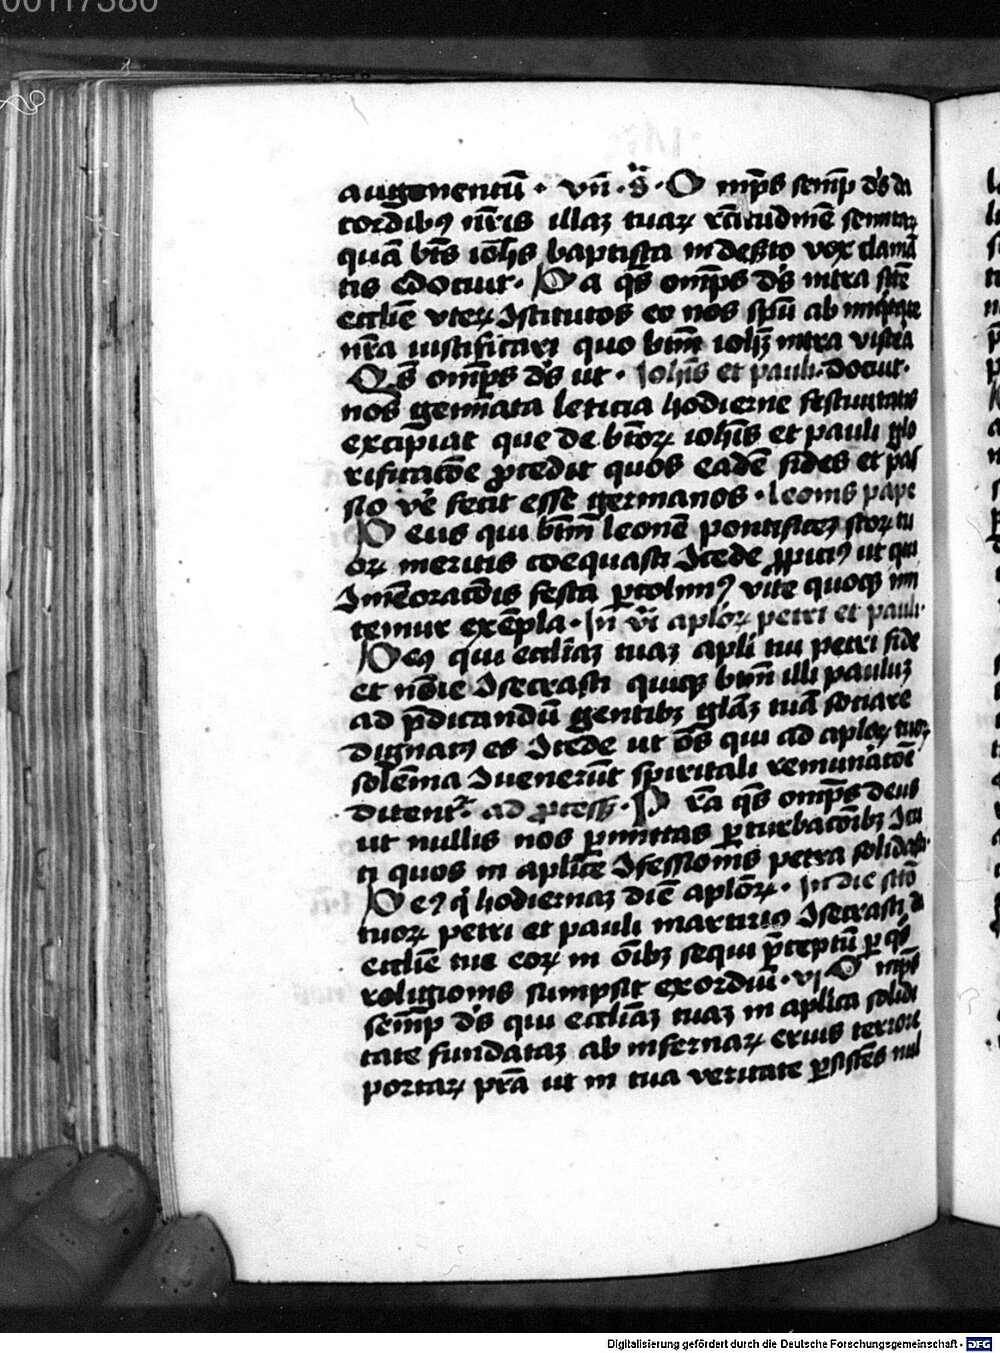 00117380
augmentū · vn̄ · S̄ · O mp̄s semp̄ ds̄ da
cordibꝯ nr̄is illaꝫ tuaꝝ
quā bt̄s ioh̄is baptista in desꝫto vox clamā
tis edocuit · Da qs̄ omp̄s ds̄ intra
eccliē vteꝝ Istitutos eo nos spū ab
nr̄a iustificari quo btm̄ ioh̄ꝫ intra
Qs̄ omp̄s ds̄ ut · Ioh̄is et pauli · docuit ·
nos gemīata leticia hodierne festiuitatis
excipiat que de bt̄oꝝ ioh̄is et pauli glo
rificacōe ꝓcedit quos eadē fides et pas
sio vē fecit esse germanos · leonis pape
Deus qui btm̄ leonē pontificeꝫ scoꝝ tu
oꝝ meritis coequasti Icede ꝓpiciꝯ ut qui
Imēoracōis festa ꝑcolimꝯ vite quoqꝫ imi
temur exēpla · In vi aploꝝ petri et pauli ·
Deꝯ qui eccliaꝫ tuaꝫ apli tui petri fide
et nōie Isecrasti quiqꝫ btm̄ illi pauluꝫ
ad p̄dicandū gentibꝫ glāꝫ tuā sociare
dignatꝯ es Icede ut ōs qui ad aploꝝ tuoꝝ
solēnia Iuenerūt spiritali remunacōe
ditent᷑ · ad ꝓcess̄ · Pr̄a qs̄ omp̄s deus
ut nullis nos ꝑmittas ꝑturbacōibꝫ Icu
ti quos in aplīce Ifessionis petra solidasti ·
Deꝯ q̇ hodiernaꝫ diē aplōꝝ · In die
tuoꝝ petri et pauli martirio Isecrasti da
eccliē tue eoꝝ in ōibꝫ sequi p̄ceptū ꝑ qs̄
religionis sumpsit exordiū · vi O mp̄s
semp̄ ds̄ qui eccliāꝫ tuaꝫ in aplīca solidi
tate fundataꝫ ab infernaꝝ eruis terrore
portaꝝ pr̄a ut in tua veritate ꝑsistēs nul
Digitalisierung gefördert durch die Deutsche Forschungsgemeinschaft - DFG